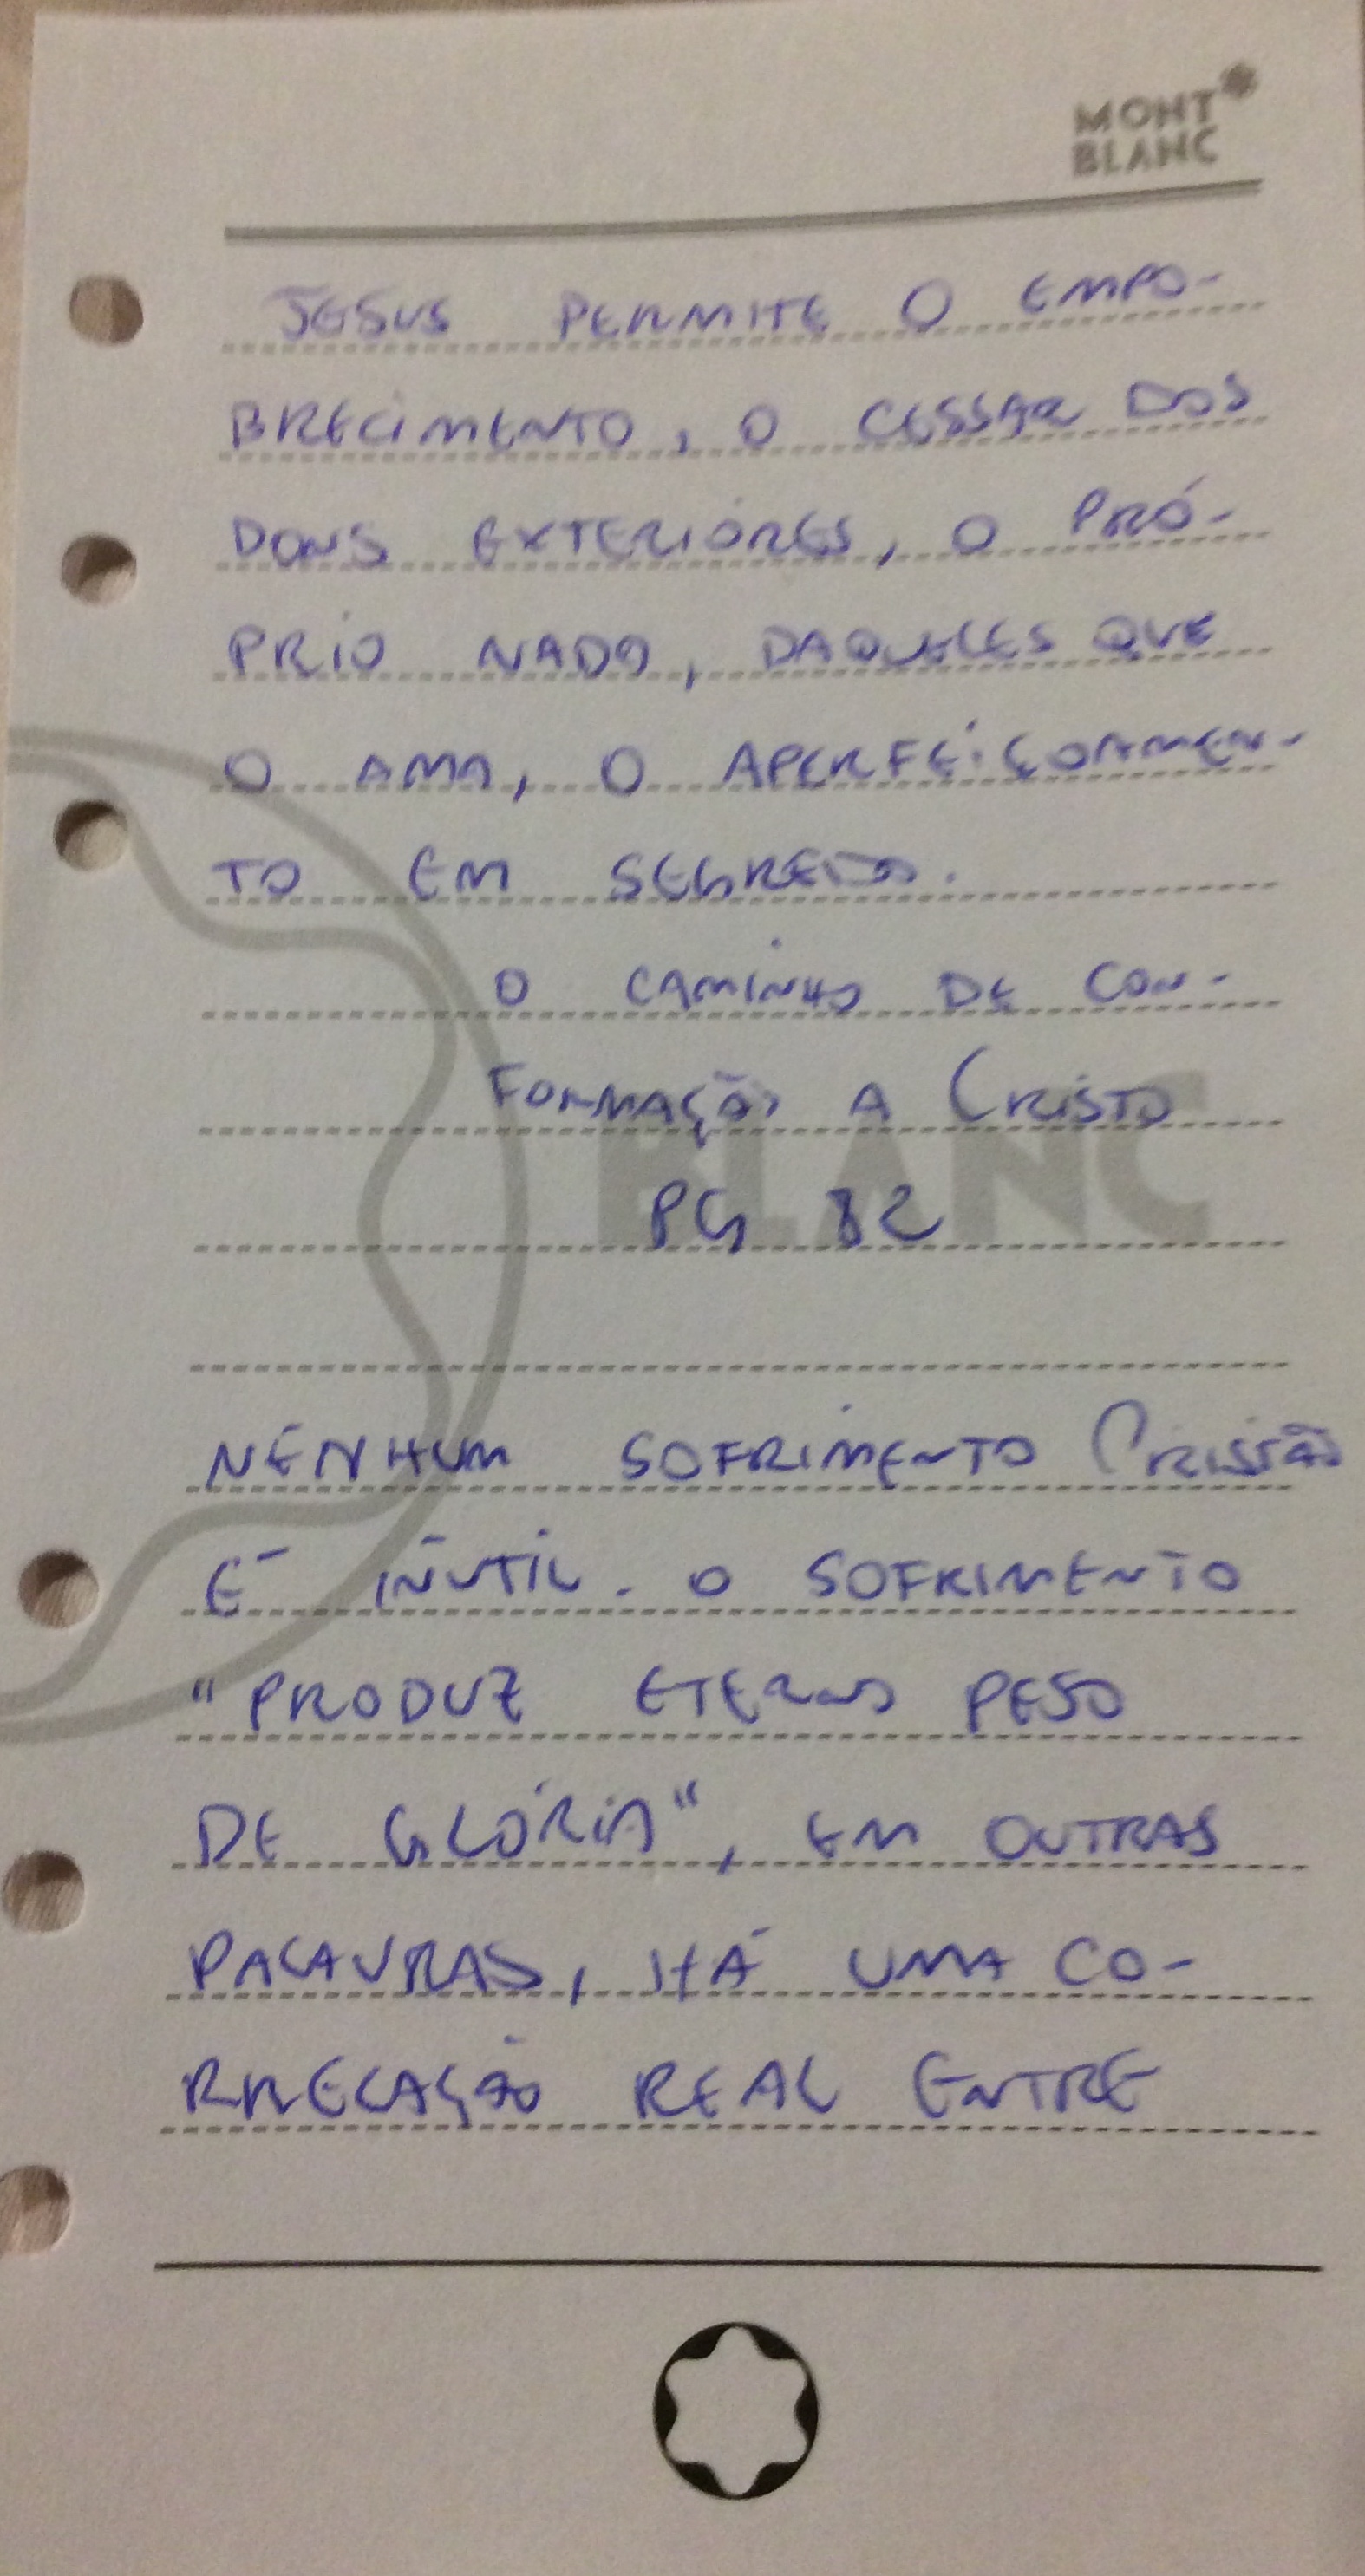 MONT
BLANC
JESUS PERMITE O EMPO-
BRECIMENTO, O CESSAR DOS
DONS EXTERIORES, O PRÓ-
PRIO NADO, DAQUELES QUE
O AMA, O APERFEIÇOAMEN-
TO EM SEGREDO.
O CAMINHO DE CON-
FORMAÇÃO A CRISTO
BLANC
PG 82
NENHUM SOFRIMENTO CRISTÃO
É INÚTIL. O SOFRIMENTO
"PRODUZ ETERNO PESO
DE GLÓRIA", EM OUTRAS
PALAVRAS, HÁ UMA CO-
RRELAÇÃO REAL ENTRE